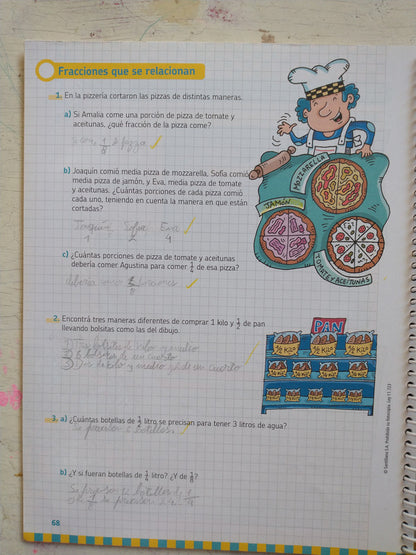 Fracciones que se relacionan
1. En la pizzería cortaron las pizzas de distintas maneras.
a) Si Amalia come una porción de pizza de tomate y
aceitunas. ¿qué fracción de la pizza come?
1/8 pizza
b) Joaquín comió media pizza de mozzarella, Sofía comió
media pizza de jamón, y Eva, media pizza de tomate
y aceitunas. ¿Cuántas porciones de cada pizza comió
cada uno, teniendo en cuenta la manera en que están
cortadas?
Joaquin Sofia Eva
1 2 4
c) ¿Cuántas porciones de pizza de tomate y aceitunas
debería comer Agustina para comer 1/4 de esa pizza?
porciones
MOZZARELLA
JAMÓN
TOMATE Y ACEITUNAS
2. Encontrá tres maneras diferentes de comprar 1 kilo y 1/2 de pan
llevando bolsitas como las del dibujo.
bolsitas de medio
bolsitas de un cuarto
medio y de un cuarto
PAN
1/2 KILO 1/2 KILO 1/2 KILO
3. a) ¿Cuántas botellas de 1/2 litro se precisan para tener 3 litros de agua?
Se precisan 6 botellas.
b) ¿Y si fueran botellas de 1/4 litro? ¿Y de 1/8?
botellas de 1/4
se precisan 24
© Santillana S.A. Prohibida su fotocopia. Ley 11.723
68